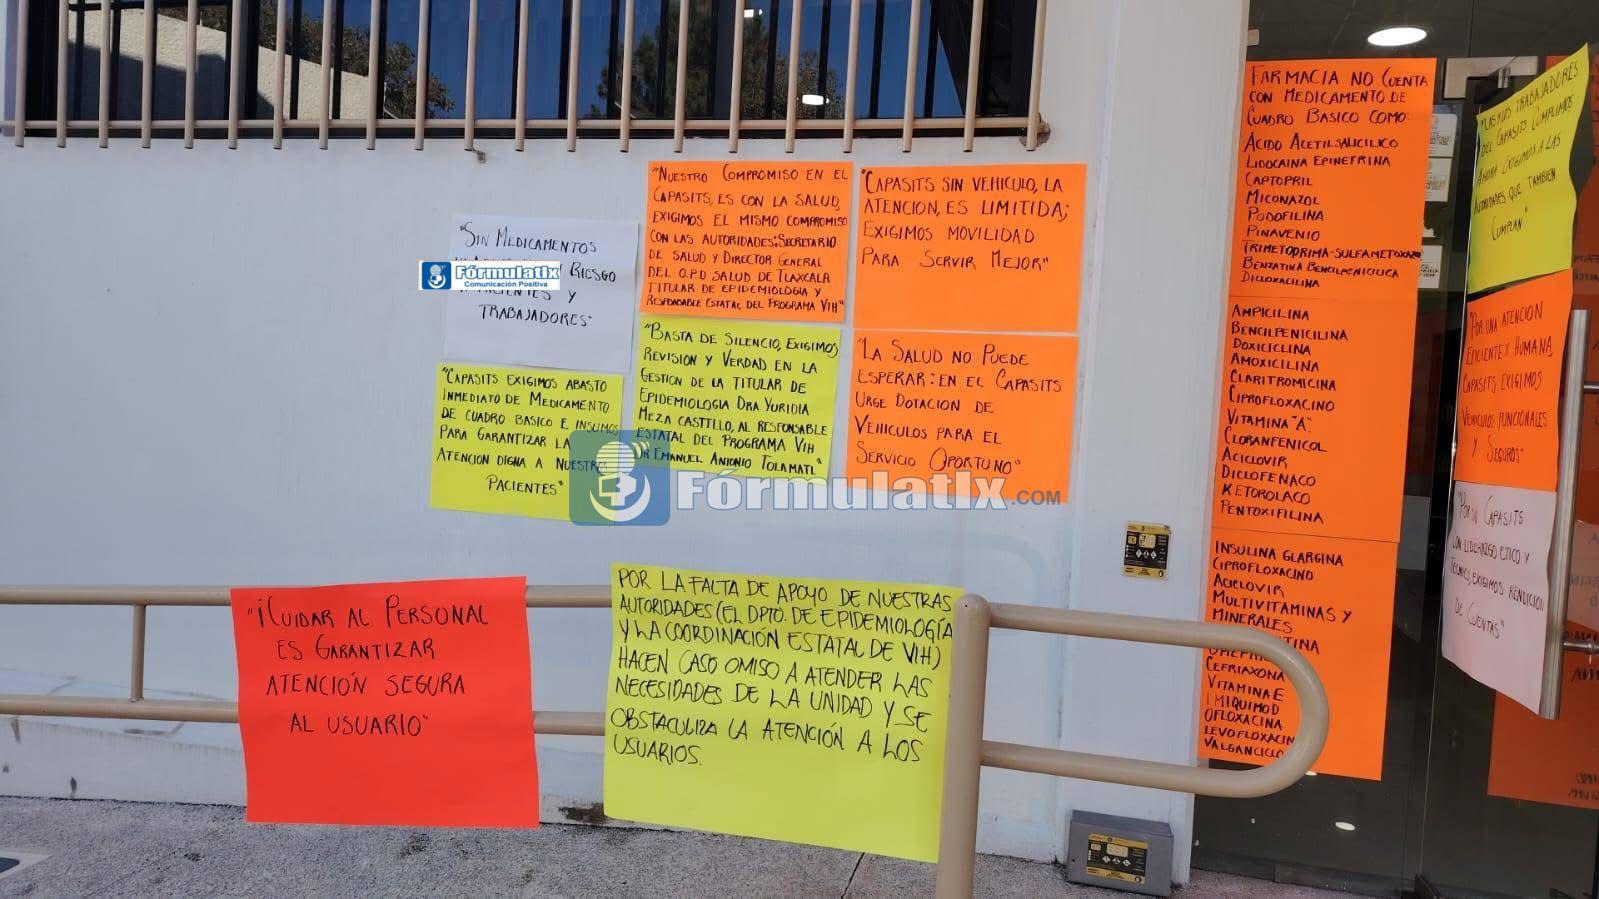 "SIN MEDICAMENTOS
RIESGO
PACIENTES Y
TRABAJADORES"
FórmulatIx
Comunicación Positiva
"NUESTRO COMPROMISO EN EL
CAPASITS, ES CON LA SALUD,
EXIGIMOS EL MISMO COMPROMISO
CON LAS AUTORIDADES: SECRETARIO
DE SALUD Y DIRECTOR GENERAL
DEL O.P.D SALUD DE TLAXCALA
TITULAR DE EPIDEMIOLOGIA Y
RESPONSABLE ESTATAL DEL PROGRAMA VIH"
"CAPASITS SIN VEHICULO, LA
ATENCION, ES LIMITIDA;
EXIGIMOS MOVILIDAD
PARA SERVIR MEJOR"
"CAPASITS EXIGIMOS ABASTO
INMEDIATO DE MEDICAMENTO
DE CUADRO BASICO E INSUMOS
PARA GARANTIZAR LA
ATENCION DIGNA A NUESTROS
PACIENTES"
"BASTA DE SILENCIO, EXIGIMOS
REVISION Y VERDAD EN LA
GESTION DE LA TITULAR DE
EPIDEMIOLOGIA DRA YURIDIA
MEZA CASTTILLO, AL RESPONSABLE
ESTATAL DEL PROGRAMA VIH
DR EMANUEL ANTONIO TOLAMATL"
"LA SALUD NO PUEDE
ESPERAR: EN EL CAPASITS
URGE DOTACION DE
VEHICULOS PARA EL
SERVICIO OPORTUNO"
FórmulatIx.COM
"¡CUIDAR AL PERSONAL
ES GARANTIZAR
ATENCIÓN SEGURA
AL USUARIO"
POR LA FALTA DE APOYO DE NUESTRAS
AUTORIDADES (EL DPTO. DE EPIDEMIOLOGÍA
Y LA COORDINACIÓN ESTATAL DE VIH)
HACEN CASO OMISO A ATENDER LAS
NECESIDADES DE LA UNIDAD Y SE
OBSTACULIZA LA ATENCIÓN A LOS
USUARIOS.
FARMACIA NO CUENTA
CON MEDICAMENTO DE
CUADRO BASICO COMO:
ACIDO ACETILSALICILICO
LIDOCAINA EPINEFRINA
CAPTOPRIL
MICONAZOL
PODOFILINA
PINAVENIO
TRIMETOPRIMA-SULFAMETOXAZOL
BENZATINA BENCILPENICILICA
DICLOXACILINA
AMPICILINA
BENCILPENICILINA
DOXICICLINA
AMOXICILINA
CLARITROMICINA
CIPROFLOXACINO
VITAMINA "A".
CLORANFENICOL
ACICLOVIR
DICLOFENACO
KETOROLACO
PENTOXIFILINA
INSULINA GLARGINA
CIPROFLOXACINO
ACICLOVIR
MULTIVITAMINAS Y
MINERALES
CEFRIAXONA
VITAMINA E
IMIQUIMOD
OFLOXACINA
LEVOFLOXACIN
VALGANCICLO
"LAS Y LOS TRABAJADORES
DEL CAPASITS CUMPLIMOS
AHORA EXIGIMOS A LAS
AUTORIDADES QUE TAMBIEN
CUMPLAN"
"POR UNA ATENCION
EFICIENTE Y HUMANA,
CAPASITS EXIGIMOS
VEHICULOS FUNCIONALES
Y SEGUROS"
"POR UN CAPASITS
CON LIDERAZGO ETICO Y
TECNICO, EXIGIMOS RENDICION
DE CUENTAS"